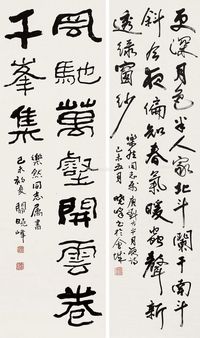 更深月色半人家北斗闌干南斗
斜今夜偏知春氣暖蟲聲新
透綠窗紗
樂然同志屬 劉方平月夜詩
己未五月 曉峰書於金陵
風馳萬壑開雲卷
千峯集
樂然同志屬書
己未初夏 關曉峰